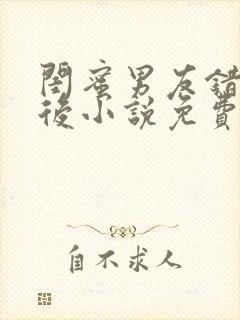 閨蜜男友錯
後小說免費
自不求人